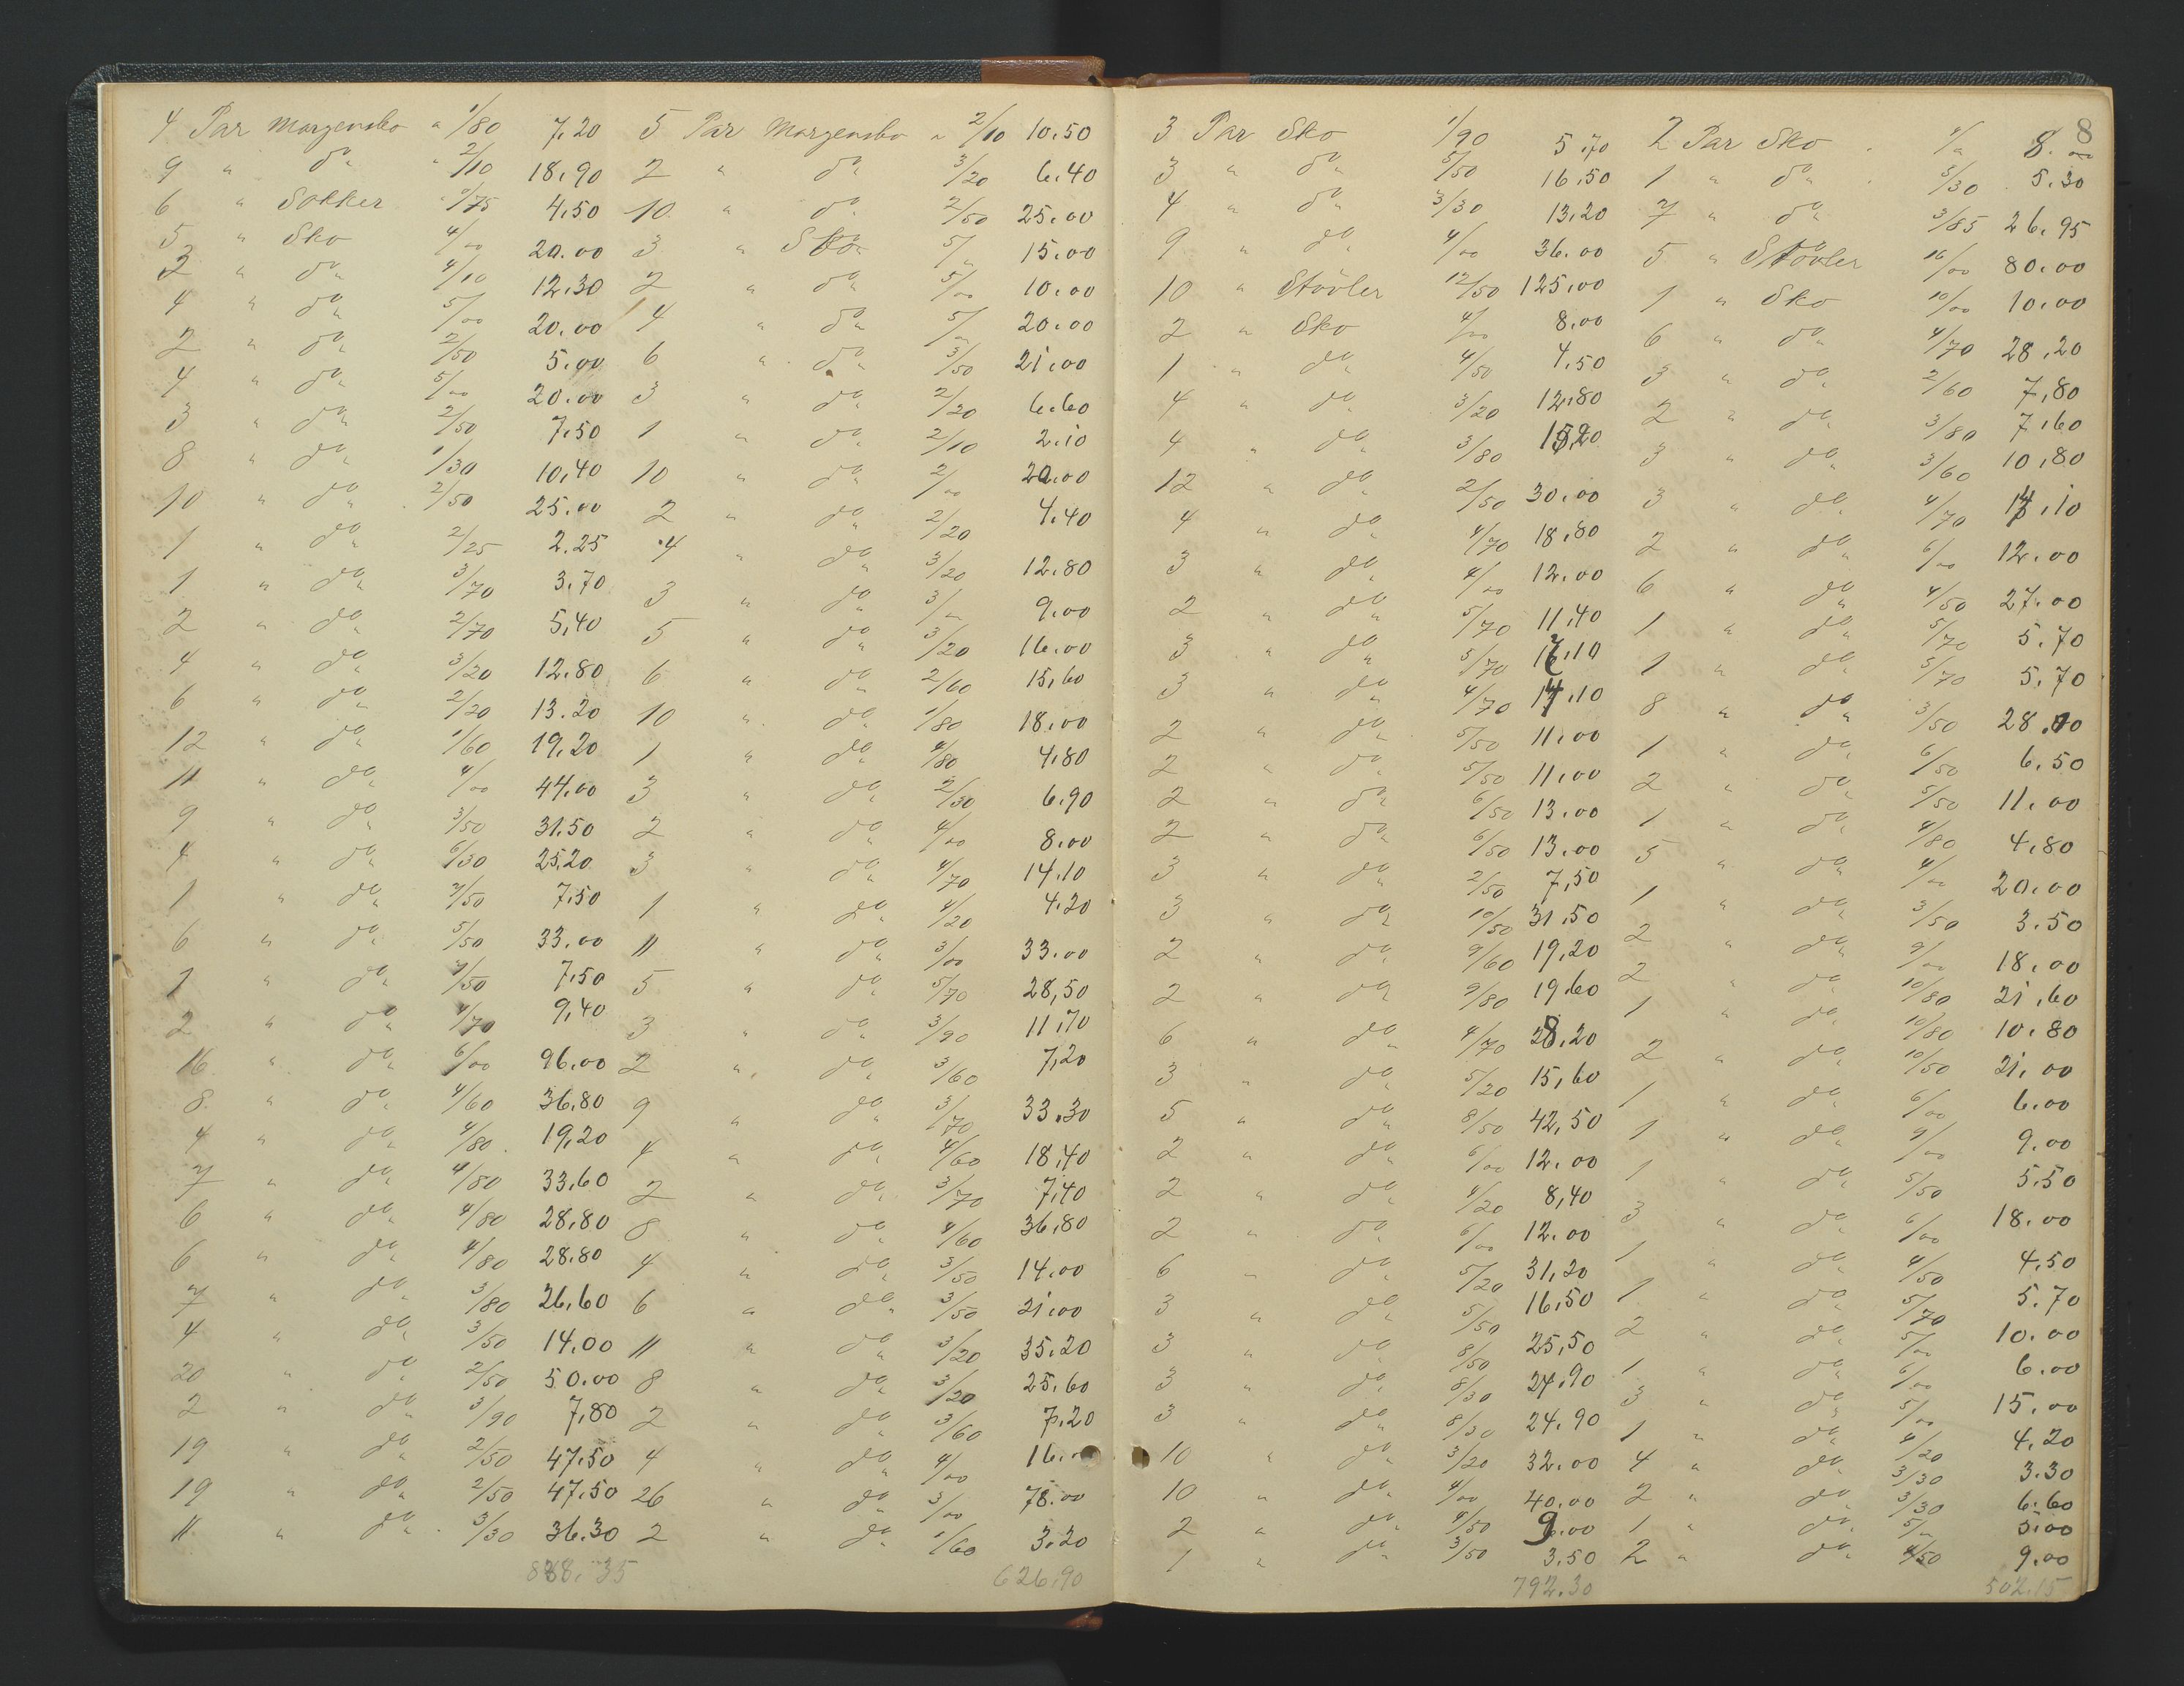 4 Par Morgensko a 1/80 7,20
9 " do " 2/10 18,90
6 " Sokker " "/75 4,50
5 " Sko 4/00 20.00
3 " do 4/10 12.30
4 " do 5/00 20.00
2 " do 2/50 5.00
4 " do 5/00 20.00
3 " do 2/50 7.50
8 " do 1/30 10,40
10 " do 2/50 25.00
1 " do 2/25 2.25
1 " do 3/70 3.70
2 " do 2/70 5,40
4 " do 3/20 12.80
6 " do 2/20 13.20
12 " do 1/60 19,20
11 " do 4/00 44.00
9 " do 3/50 31.50
4 " do 6/30 25.20
1 " do 7/50 7.50
6 " do 5/50 33.00
1 " do 7/50 7.50
2 " do 4/70 9,40
16 " do 6/00 96.00
8 " do 4/60 36.80
4 " do 4/80 19,20
7 " do 4/80 33.60
6 " do 4/80 28.80
6 " do 4/80 28.80
7 " do 3/80 26,60
4 " do 3/50 14.00
20 " do 2/50 50.00
2 " do 3/90 7,80
19 " do 2/50 47.50
19 " do 2/50 47.50
11 " do 3/30 36.30
35
5 Par Morgensko a 2/10 10.50
2 " do 3/20 6.40
10 " do 2/50 25.00
3 " Sko 5/" 15.00
2 " do 5/00 10.00
4 " do 5/" 20.00
6 " do 3/50 21.00
3 " do 2/20 6.60
1 " do 2/10 2.10
10 " do 2/00 20.00
2 " do 2/20 4.40
4 " do 3/20 12.80
3 " do 3/" 9.00
5 " do 3/20 16.00
6 " do 2/60 15,60
10 " do 1/80 18.00
1 " do 4/80 4.80
3 " do 2/30 6.90
2 " do 4/00 8.00
3 " do 4/70 14.10
1 " do 4/20 4.20
11 " do 3/00 33.00
5 " do 5/70 28,50
3 " do 3/90 11,70
2 " do 3/60 7,20
9 " do 3/70 33.30
4 " do 4/60 18,40
2 " do 3/70 7,40
8 " do 4/60 36,80
4 " do 3/50 14.00
6 " do 3/50 21.00
11 " do 3/20 35.20
8 " do 3/20 25.60
2 " do 3/60 7.20
4 " do 4/00 16.
26 " do 3/00 78.00
2 " do 1/60 3.20
626,90
3 Par Sko 1/90 5.70
3 " do 5/50 16,50
4 " do 3/30 13,20
9 " do 4/00 36.00
10 " Stövler 12/50 125,00
2 " Sko 4/00 8.00
1 " do 4/50 4.50
4 " do 3/20 12,80
4 " do 3/80 15,20
12 " do 2/50 30.00
4 " do 4/70 18,80
3 " do 4/00 12.00
2 " do 5/70 11,40
3 " do 5/70 17.10
3 " do 4/70 14.10
2 " do 5/50 11.00
2 " do 5/50 11.00
2 " do 6/50 13.00
2 " do 6/50 13.00
3 " do 2/50 7,50
3 " do 10/50 31.50
2 " do 9/60 19,20
2 " do 9/80 19.60
6 " do 4/70 28.20
3 " do 5/20 15,60
5 " do 8/50 42,50
2 " do 6/00 12.00
2 " do 4/20 8,40
2 " do 6/00 12.00
6 " do 5/20 31,20
3 " do 5/50 16,50
3 " do 8/50 25,50
3 " do 8/30 24.90
3 " do 8/30 24.90
10 " do 3/20 32.00
10 " do 4/00 40.00
2 " do 4/50 9.00
1 " do 3/50 3.50
792.30
8
2 Par Sko 4/" 8.00
1 " do 5/30 5.30
7 " do 3/85 26.95
5 " Stövler 16/00 80.00
1 " Sko 10/00 10.00
6 " do 4/70 28,20
3 " do 2/60 7,80
2 " do 3/80 7,60
3 " do 3/60 10,80
3 " do 4/70 14,10
2 " do 6/00 12.00
6 " do 4/50 27.00
1 " do 5/70 5.70
1 " do 5/70 5.70
8 " do 3/50 28.00
1 " do 6/50 6.50
2 " do 5/50 11.00
1 " do 4/80 4.80
5 " do 4/00 20.00
1 " do 3/50 3.50
2 " do 9/00 18.00
2 " do 10/80 21.60
1 " do 10/80 10.80
2 " do 10/50 21.00
1 " do 6/00 6.00
1 " do 9/00 9.00
1 " do 5/50 5.50
3 " do 6/00 18.00
1 " do 4/50 4.50
1 " do 5/70 5.70
2 " do 5/00 10.00
1 " do 6/00 6.00
3 " do 5/00 15.00
1 " do 4/20 4.20
4 " do 3/30 3.30
2 " do 3/30 6.60
1 " do 5/" 5.00
2 " do 4/50 9.00
502.15